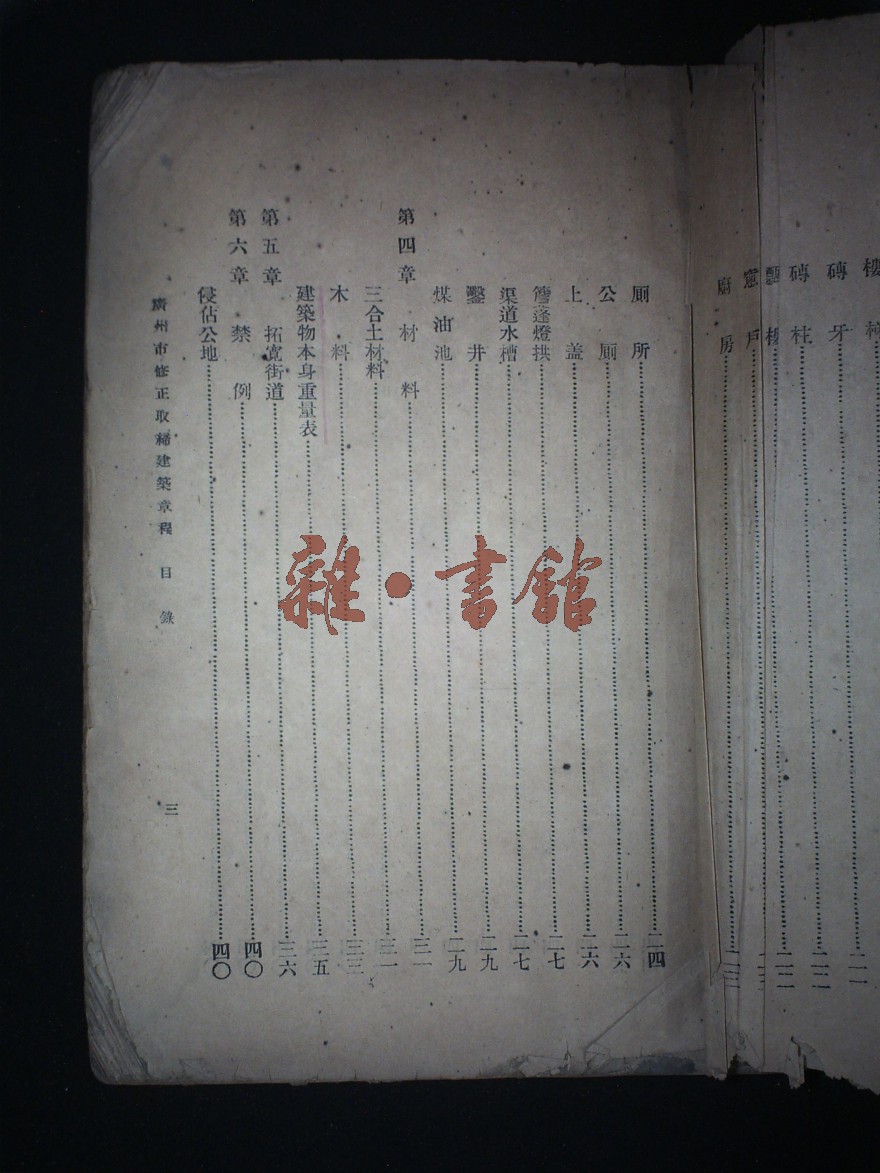 磚牙……二二
磚柱……二二
窗戶
廚房……二三
厠所……二四
公厠……二六
上盖……二六
簷篷燈拱……二七
渠道水槽……二七
鑿井……二九
煤油池……二九
第四章 材料……三一
三合土材料……三一
木料……三三
建築物本身重量表……三五
第五章 拓寬街道……三六
第六章 禁例……四〇
侵佔公地……四〇
廣州市修正取締建築章程 目錄 三
雜·書館